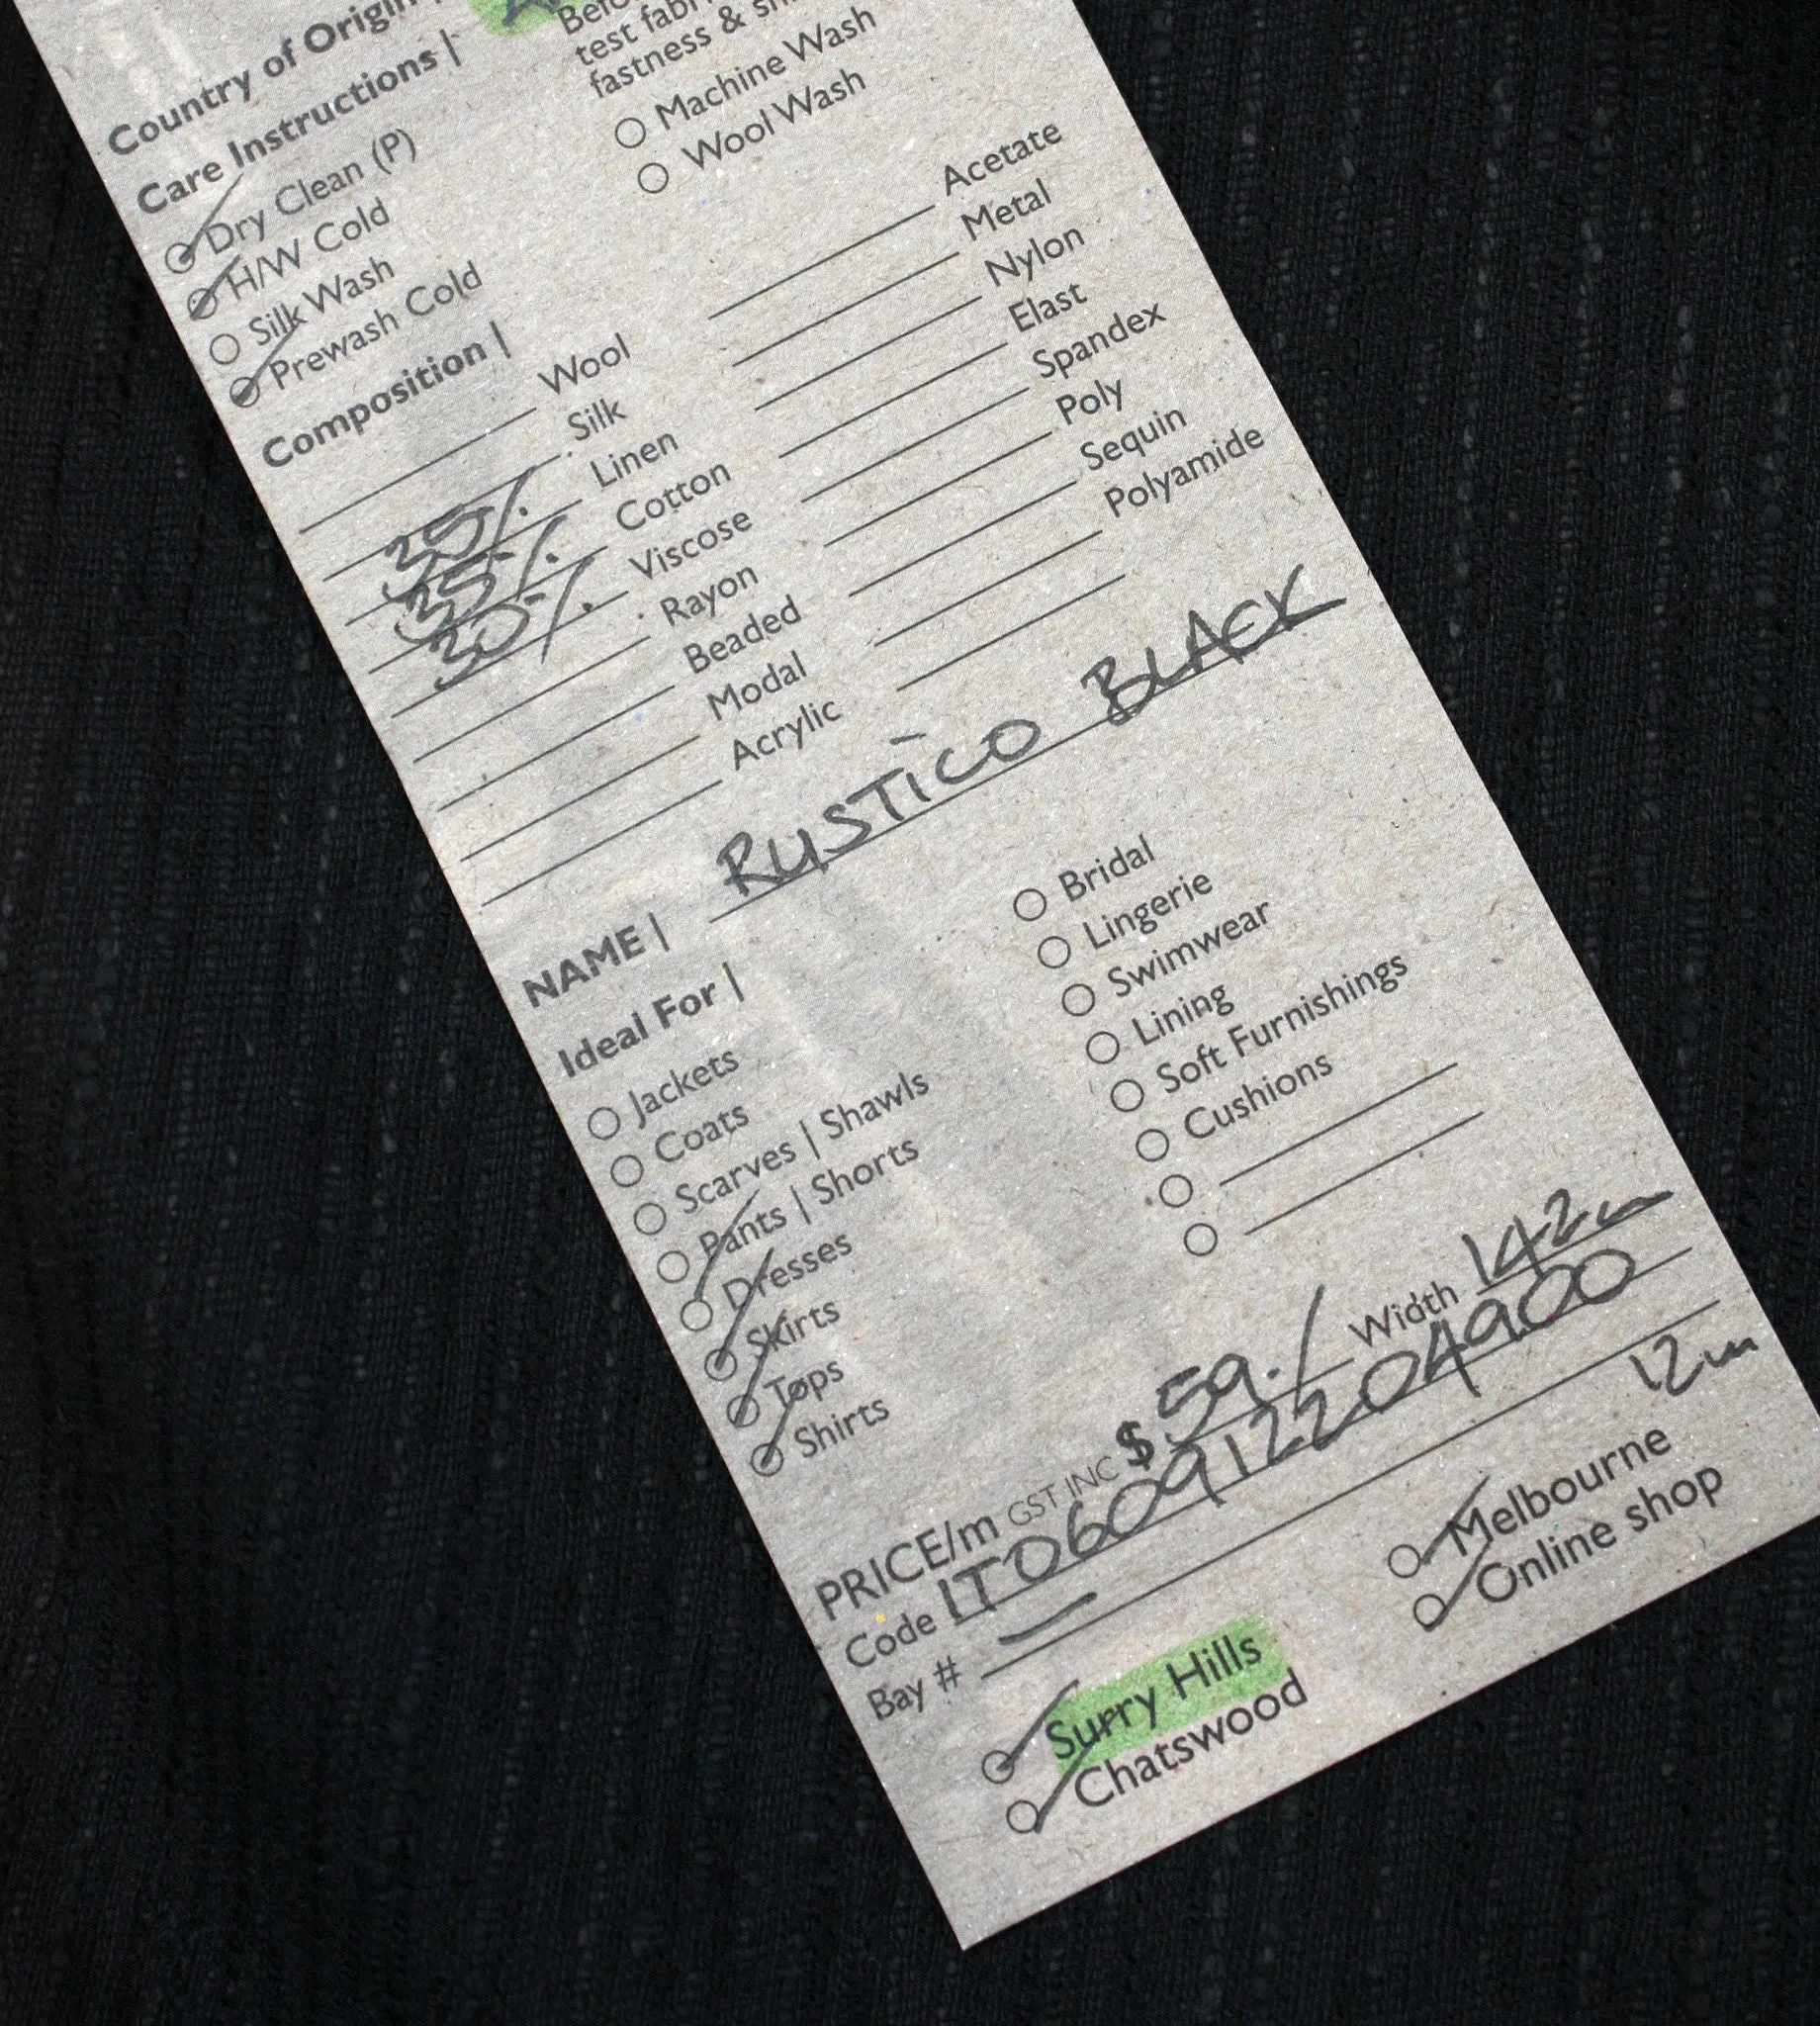 Country of Origin |
Care Instructions |
Dry Clean (P)
H/W Cold
Silk Wash
Prewash Cold
test
fastness &
Machine Wash
Wool Wash
Composition |
Wool
Silk
35% Linen
35% Cotton
30% Viscose
Rayon
Beaded
Modal
Acrylic
Acetate
Metal
Nylon
Elast
Spandex
Poly
Sequin
Polyamide
NAME | RUSTICO BLACK
Ideal For |
Jackets
Coats
Scarves | Shawls
Pants | Shorts
Dresses
Skirts
Tops
Shirts
Bridal
Lingerie
Swimwear
Lining
Soft Furnishings
Cushions
PRICE/m GST INC $ 59./ Width 142
Code IT060912204900
Bay # — 12m
Surry Hills
Chatswood
Melbourne
Online shop